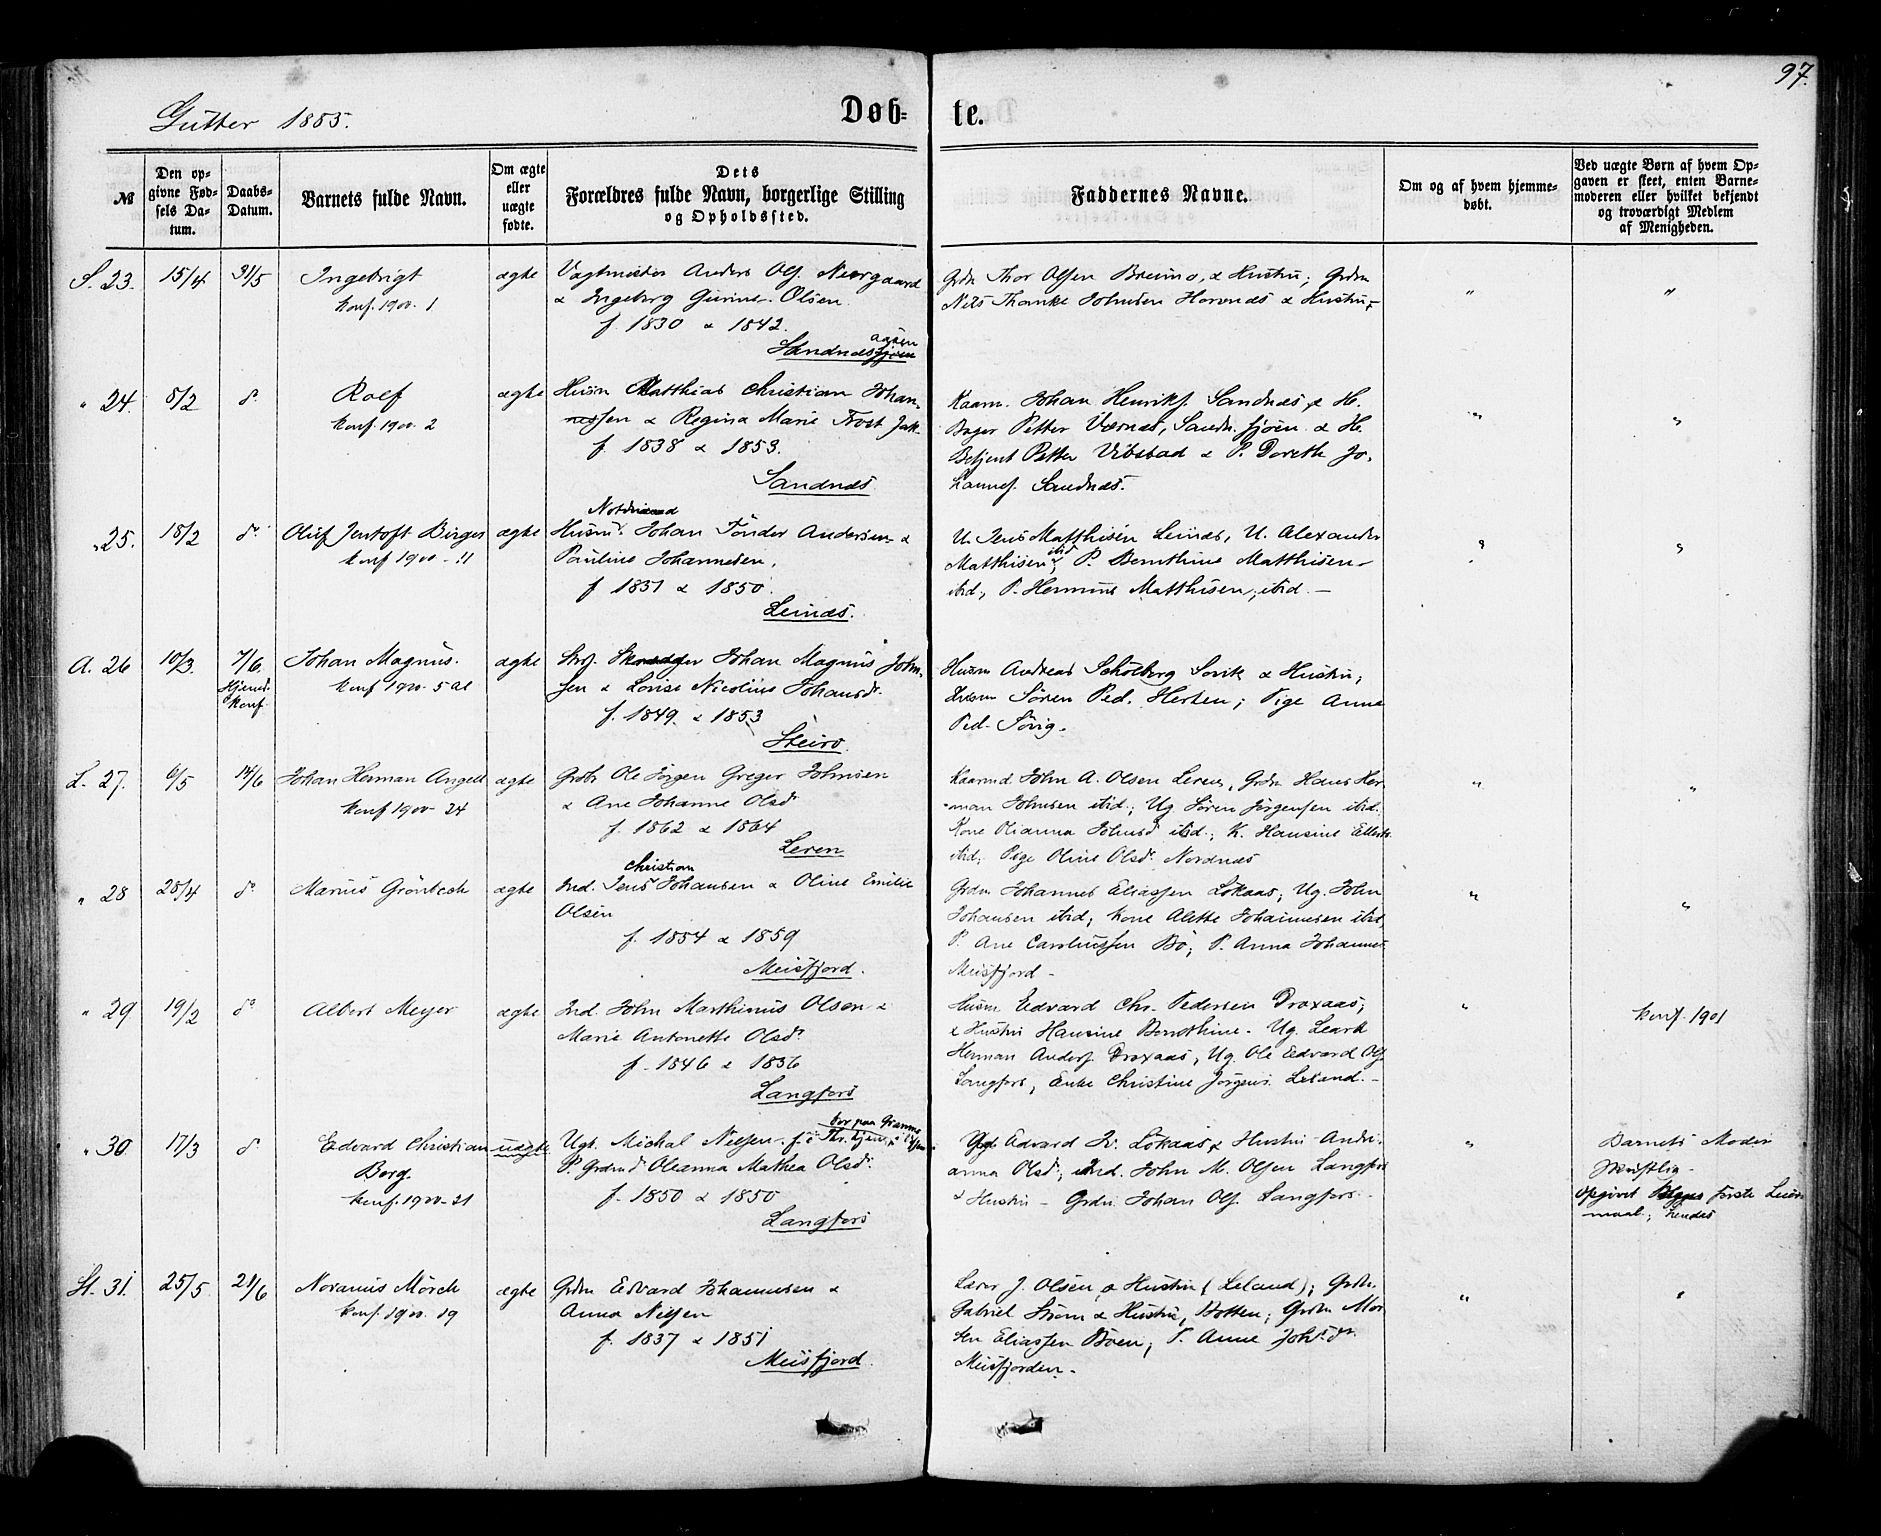 97.
Gutter 1885.
Døb-
te.
№
Den op-
givne Fød-
sels Da-
tum.
Daabs-
Datum.
Barnets fulde Navn.
Om ægte
eller
uægte
fødte.
Dets
Forældres fulde Navn, borgerlige Stilling
og Opholdssted.
Faddernes Navne.
Om og af hvem hjemme-
døbt.
Ved uægte Børn af hvem Op-
gaven er skeet, enten Barne-
moderen eller hvilket bekjendt
og troværdigt Medlem
af Menigheden.
S. 23. 15/4 31/5 Ingebrigt
konf. 1900. 1
ægte
Anders Ols. Neergaard
& Ingeborg Olsen
f. 1830 & 1842.
Thor Olsen & Hustru; Grdm
Johnsen & Hustru
" "
" 24. 5/2 do Rolf
konf. 1900. 2
ægte
Husm Matthias Christian Johan-
nessen & Regina Marie Trost Jak-
f. 1838 & 1853.
Sandnæs
Kaarm. Johan Henriks. Sandnæs & H.
Petter Værnæs, & H.
Betjent Petter Vibstad & P. Dorethe Jo-
hannes. Sandnæs.
" "
" 25. 18/2 do Oluf Jentoft Birger
konf 1900 - 11
ægte
Husm. Johan Tønder Andersen &
Pauline Johannesen,
f 1831 & 1850.
Leinæs.
U. Jens Matthisen Leinæs, U. Alexander
Matthisen ibid; P. Bernthine Matthisen
ibid, P. Matthisen, ibid. -
" "
A. 26 10/3. 7/6. Johan Magnus.
konf 1900. 5
ægte
Johan Magnus John-
sen & Lovise Johansdr.
f. 1849. & 1853
Steiro.
Husm Andreas Sørvik & Hustru;
Søren Ped. ; Pige Anna
Ped. Sørvig.
L. 27. 6/5 14/6 Johan Herman Angell
konf 1900 24
ægte
Grdbr Ole Jørgen Greger Johnsen
& Ane Johanne Olsdr
f. 1862 & 1864
Leren
Kaarmd John A. Olsen Leren, Grdm Hans Her-
man Johnsen ibid; Ug Søren Jørgensen ibid.
Kone Olianna Johnsdr ibid.; K. Hansine
ibid; Pige Oline Olsdr. Nordnæs
" "
" 28 25/4 do Marius Grønbech
ægte
Ind. Jens Christian Johansen & Oline Emilie
Olsen
f. 1854 & 1859
Meisfjord.
Grdm Johannes Eliassen Løkaas; Ug. John
Johansen ibid; Kone Alette Johannesen ibid,
P. Ane Bø; P. Anna Johannes
Meisfjord -
" "
" 29 19/2 do Albert Meyer
ægte
Ind. John Marthinus Olsen &
Marie Antonette Olsdr.
f. 1846 & 1836
Langfors
Husm Edvard Chr. Pedersen Droxaas;
& Hustru Hansine Bernthine. Ug.
Herman Anders. Droxaas, Ug. Ole Edvard Ols.
Langfors, Enke Christine Jørgens. Leland. -
"
konf. 1901
" 30. 17/3 do Edvard Christian
Borg.
konf. 1900 21
uægte
Ugk. Michal Nelsen
P. Oleanna Mathea Olsdr.
f. 1850 & 1850
Langfors
Edvard Løkaas & Hustru Andri-
anna Olsdr, Ind. John M. Olsen Langfors
& Hustru - Grdm. Johan Ols. Langfors.
"
Barnets Moder
skriftlig -
opgivet første Leier-
maal; hendes
St. 31. 25/5. 21/6 Noranus Mørch
konf. 1900. 19
ægte
Grdm Edvard Johannesen &
Anna Nelsen
f. 1837 & 1851
Meisfjord.
Lærer J. Olsen & Hustru (Leland); Grdm.
Gabriel Strøm & Hustru, Botten; Grdm Mor-
ten Eliassen Bøen; P. Anne
Meisfjorden. -
" "